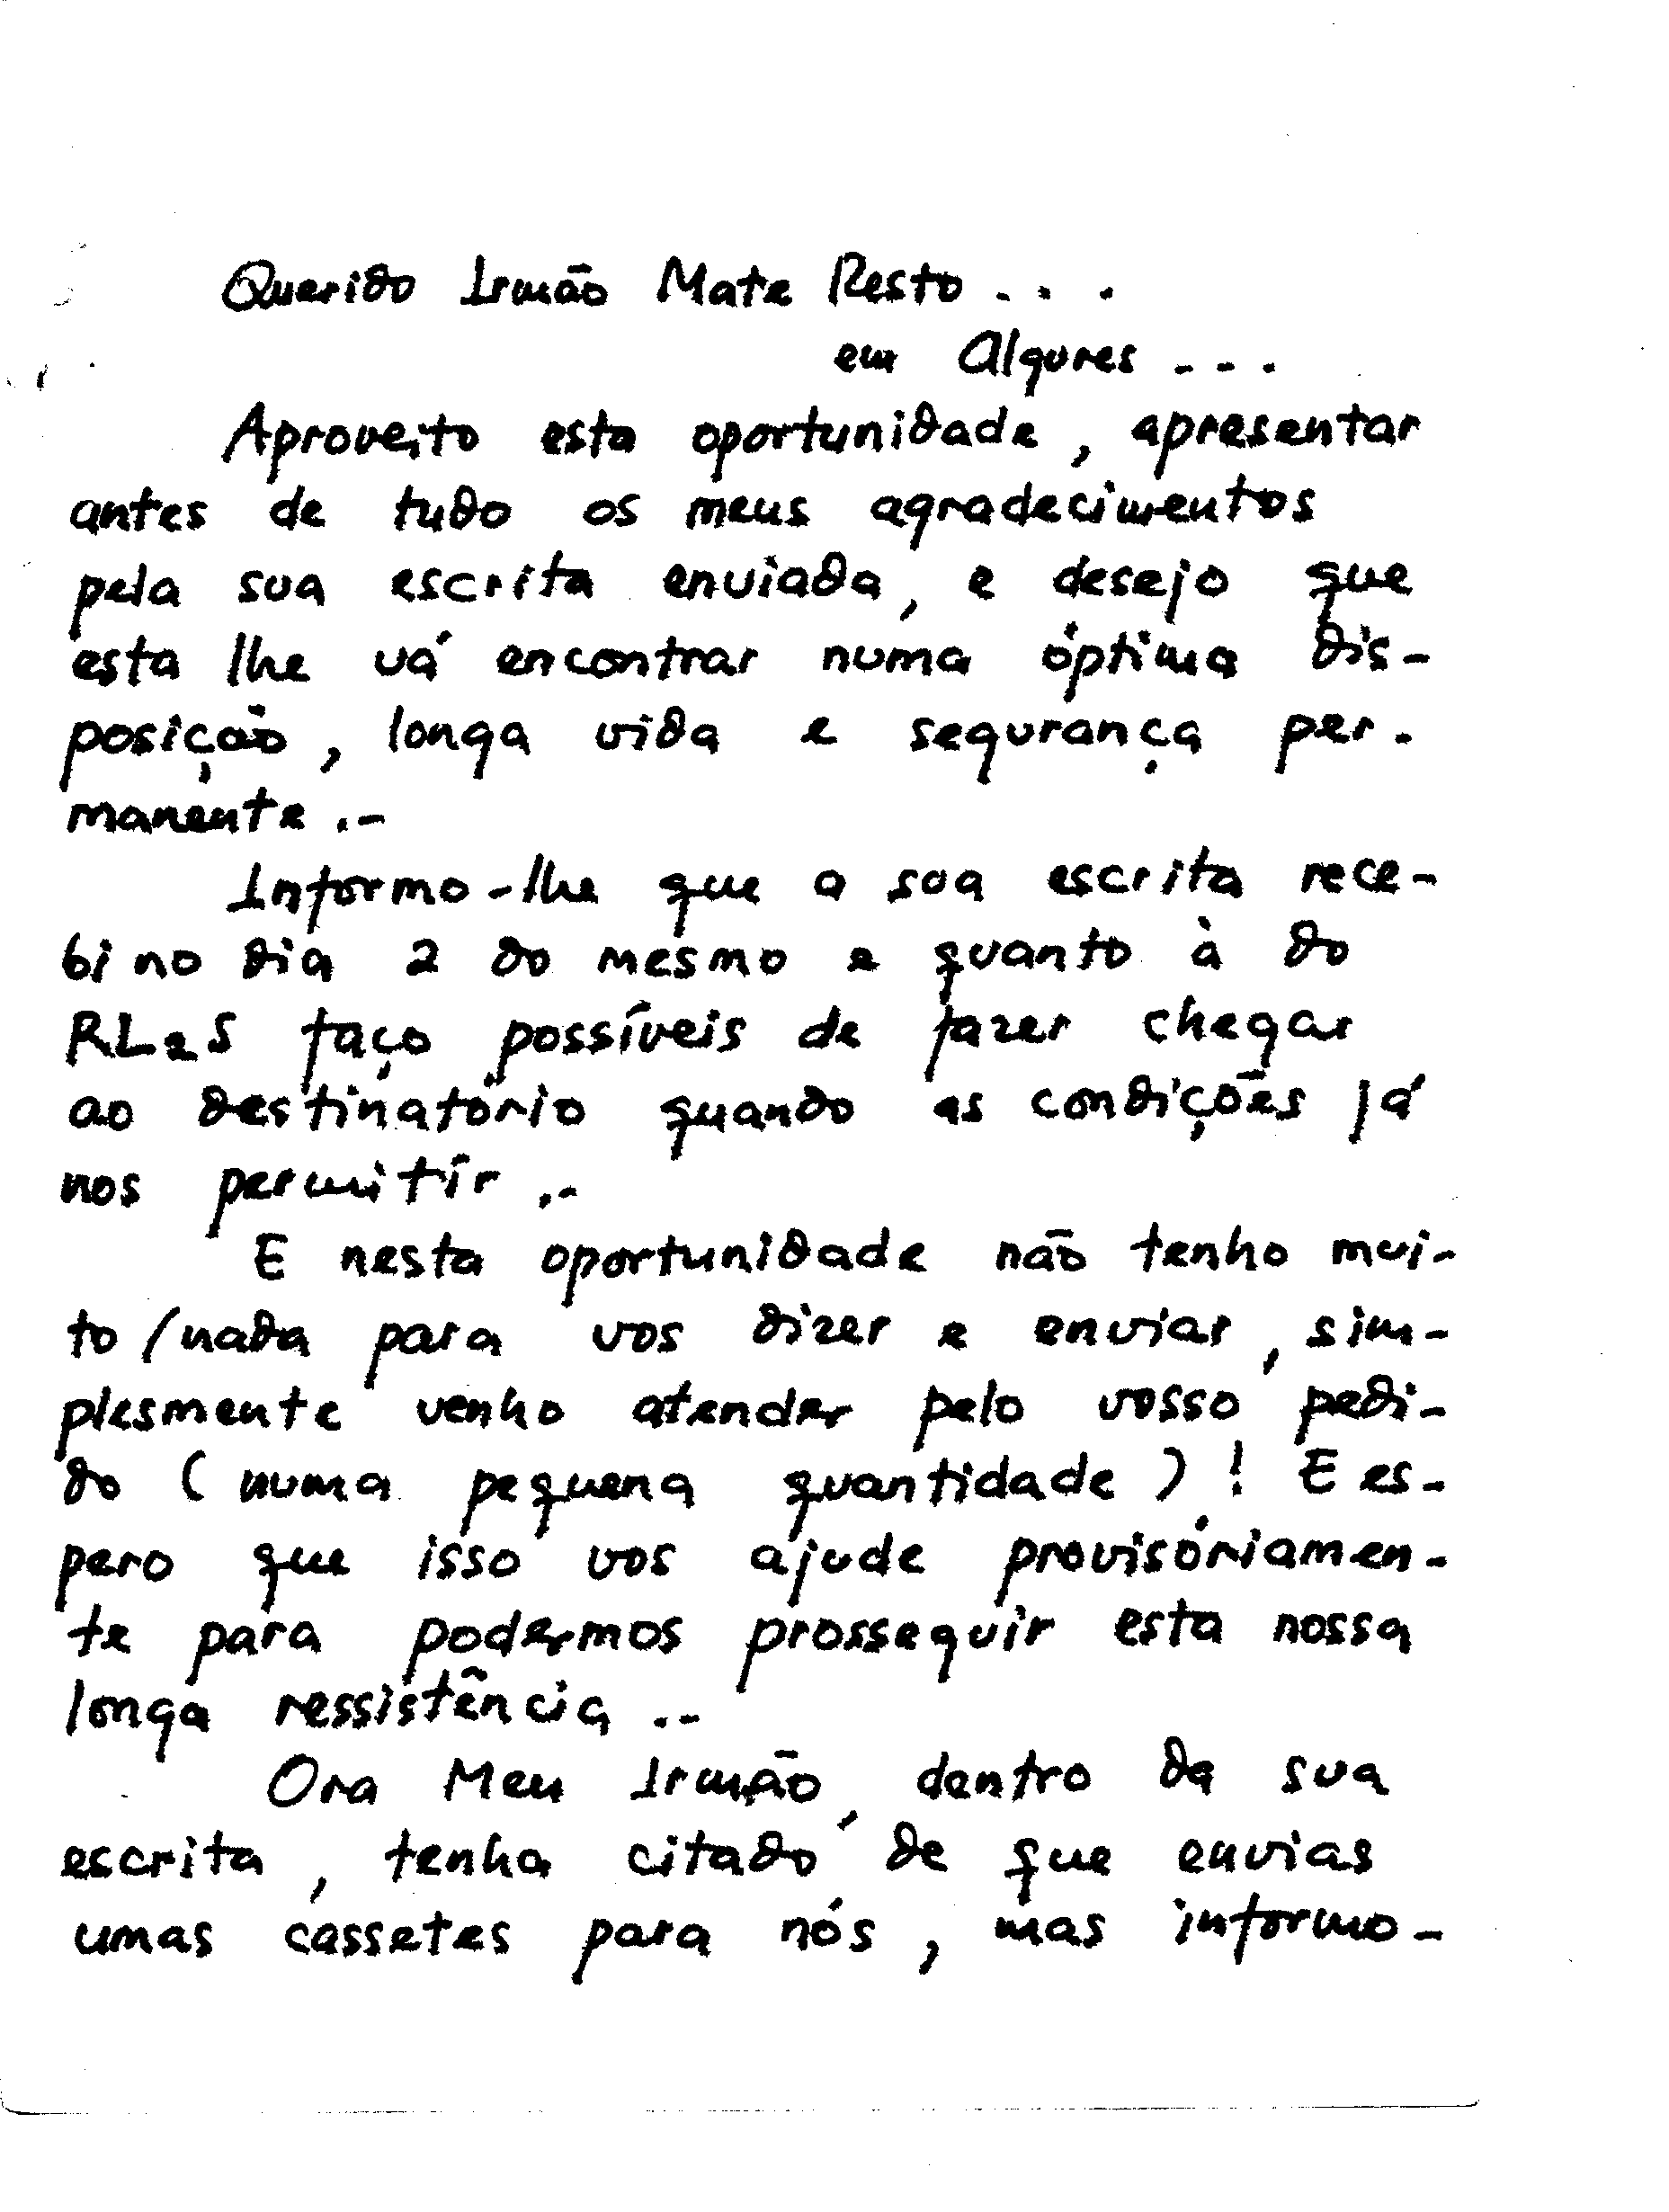 Querido Irmão Mate Resto . . .
em Algures . . .
Aproveito esta oportunidade, apresentar
antes de tudo os meus agradecimentos
pela sua escrita enviada, e desejo que
esta lhe vá encontrar numa óptima dis-
posição, longa vida e segurança per-
manente .-
Informo-lhe que a sua escrita rece-
bi no dia 2 do mesmo e quanto à do
RLeS faço possíveis de fazer chegar
ao destinatório quando as condições já
nos permitír .-
E nesta oportunidade não tenho mui-
to/nada para vos dizer e enviar, sim-
plesmente venho atender pelo vosso pedi-
do (numa pequena quantidade)! E es-
pero que isso vos ajude provisóriamen-
te para podermos prosseguir esta nossa
longa ressistência .-
Ora Meu Irmão, dentro da sua
escrita, tenha citado de que envias
umas cassetes para nós, mas informo-